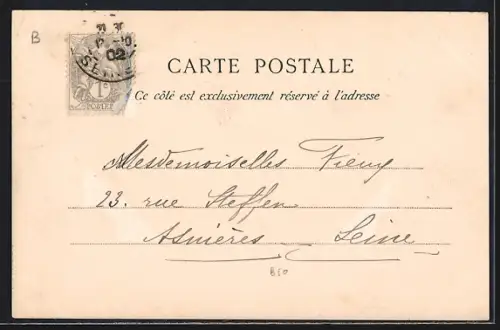 B
02
SEINE
1c
POSTES
CARTE POSTALE
Ce côté est exclusivement réservé à l'adresse
Mesdemoiselles
23. rue Steffen
Asnières _ Seine _
B50